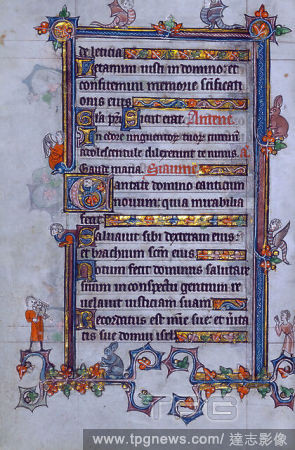 de leticia
Letamini iusti in domino: et
confitemini memorie sanctificati
onis eius
Gloria patri Sicut erat. Antene
In odore unguentor tuor currim
adolescentule dilexerunt te nimis. A
Gaude maria. Psalmus
Cantate domino canticum
novum: quia mirabilia
fecit
Saluauit sibi dextera eius:
et brachium scm eius
Notum fecit dominus salutare
suum in conspectu gentium re
uelauit iusticiam suam
Recordatus est mie sue et uita
tis sue domui isrl
TPG
www.tpgnews.com / 達志影像